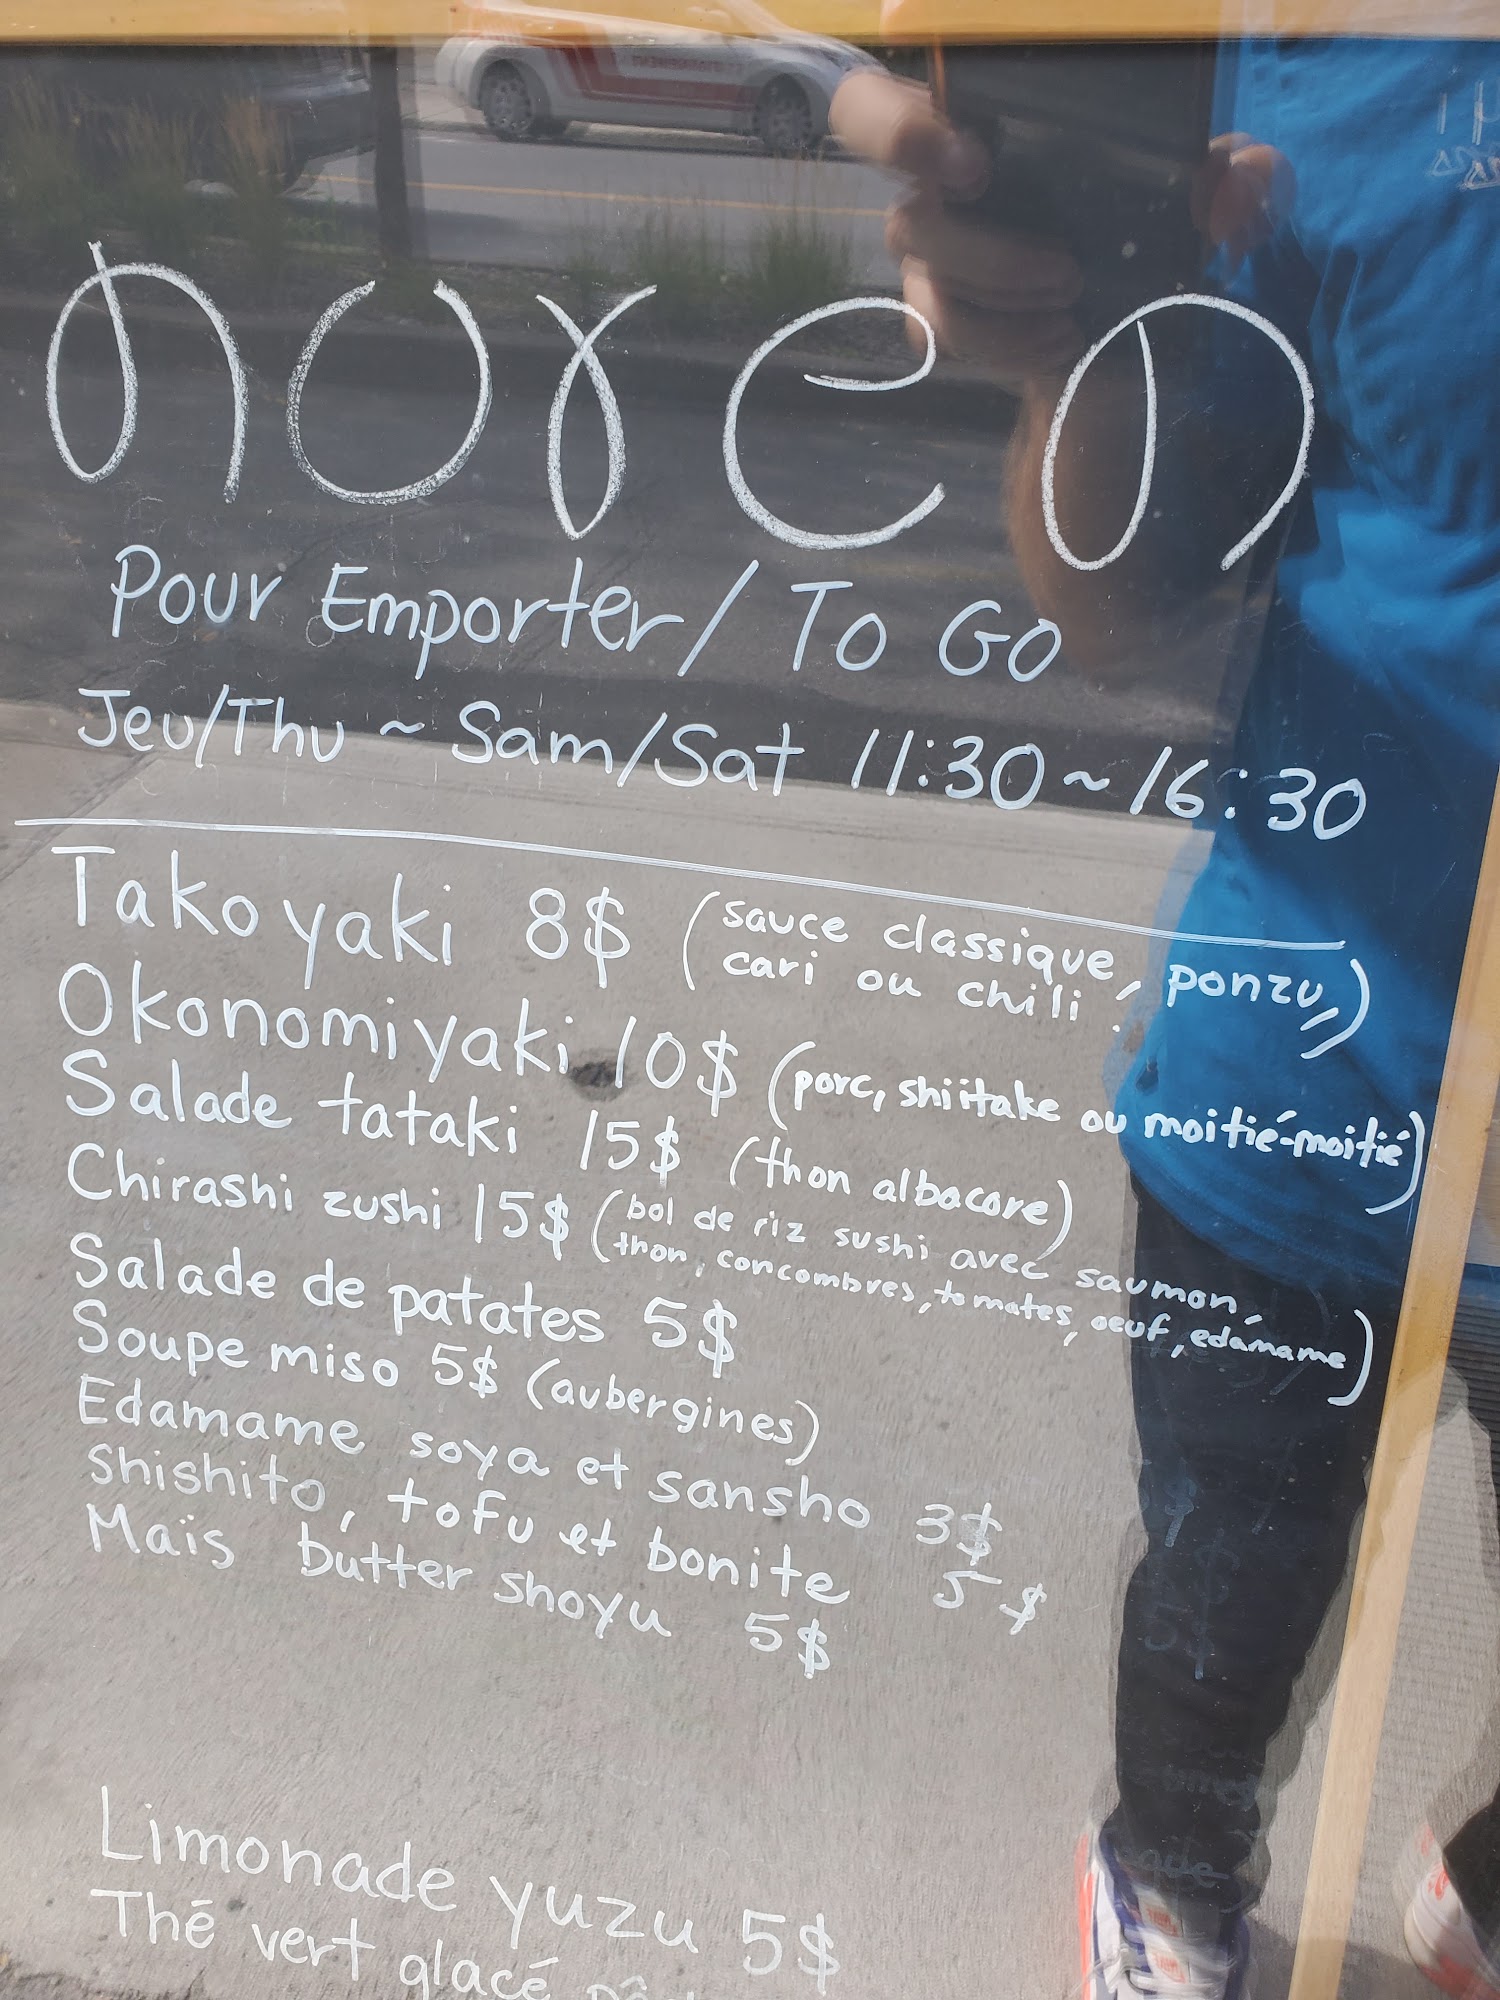 noren
Pour Emporter / To Go
Jeu/Thu ~ Sam/Sat 11:30 ~ 16:30
Takoyaki 8$ (sauce classique, ponzu,
cari ou chili)
Okonomiyaki 10$ (porc, shiitake ou moitié-moitié)
Salade tataki 15$ (thon albacore)
Chirashi zushi 15$ (bol de riz sushi avec saumon,
thon, concombres, tomates, oeuf, edamame)
Salade de patates 5$
Soupe miso 5$ (aubergines)
Edamame soya et sansho 3$
Shishito, tofu et bonite 5$
Maïs butter shoyu 5$
Limonade yuzu 5$
Thé vert glacé